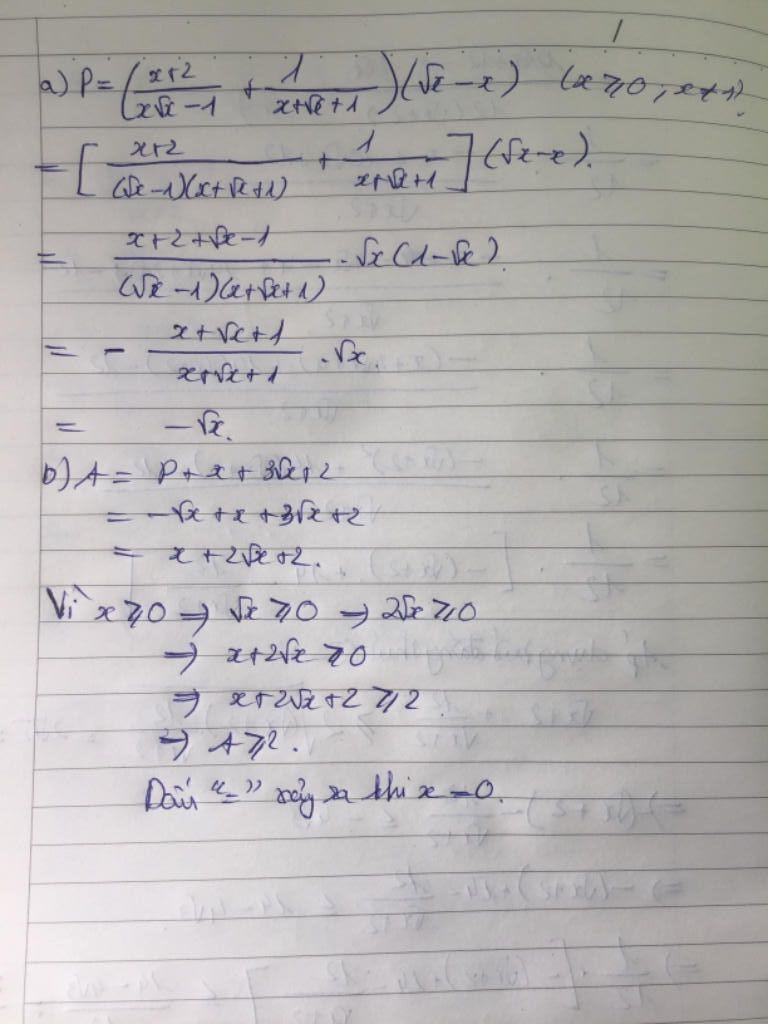 1
a) P = (x+2/(x√x − 1) + 1/(x+√x+1))(√x − x) (x ⩾ 0, x ≠ 1).
= [x+2/((√x −1)(x+√x+1)) + 1/(x+√x+1)](√x−x).
= (x+2+√x−1)/((√x −1)(x+√x+1)) . √x(1−√x).
= − (x+√x+1)/(x+√x+1) . √x.
= −√x.
b) A = P + x + 3√x+2
= −√x + x + 3√x + 2
= x + 2√x + 2.
Vì x ⩾ 0 ⇒ √x ⩾ 0 ⇒ 2√x ⩾ 0
⇒ x+2√x ⩾ 0
⇒ x+2√x+2 ⩾ 2
⇒ A ⩾ 2.
Dấu "=" xảy ra khi x = 0.